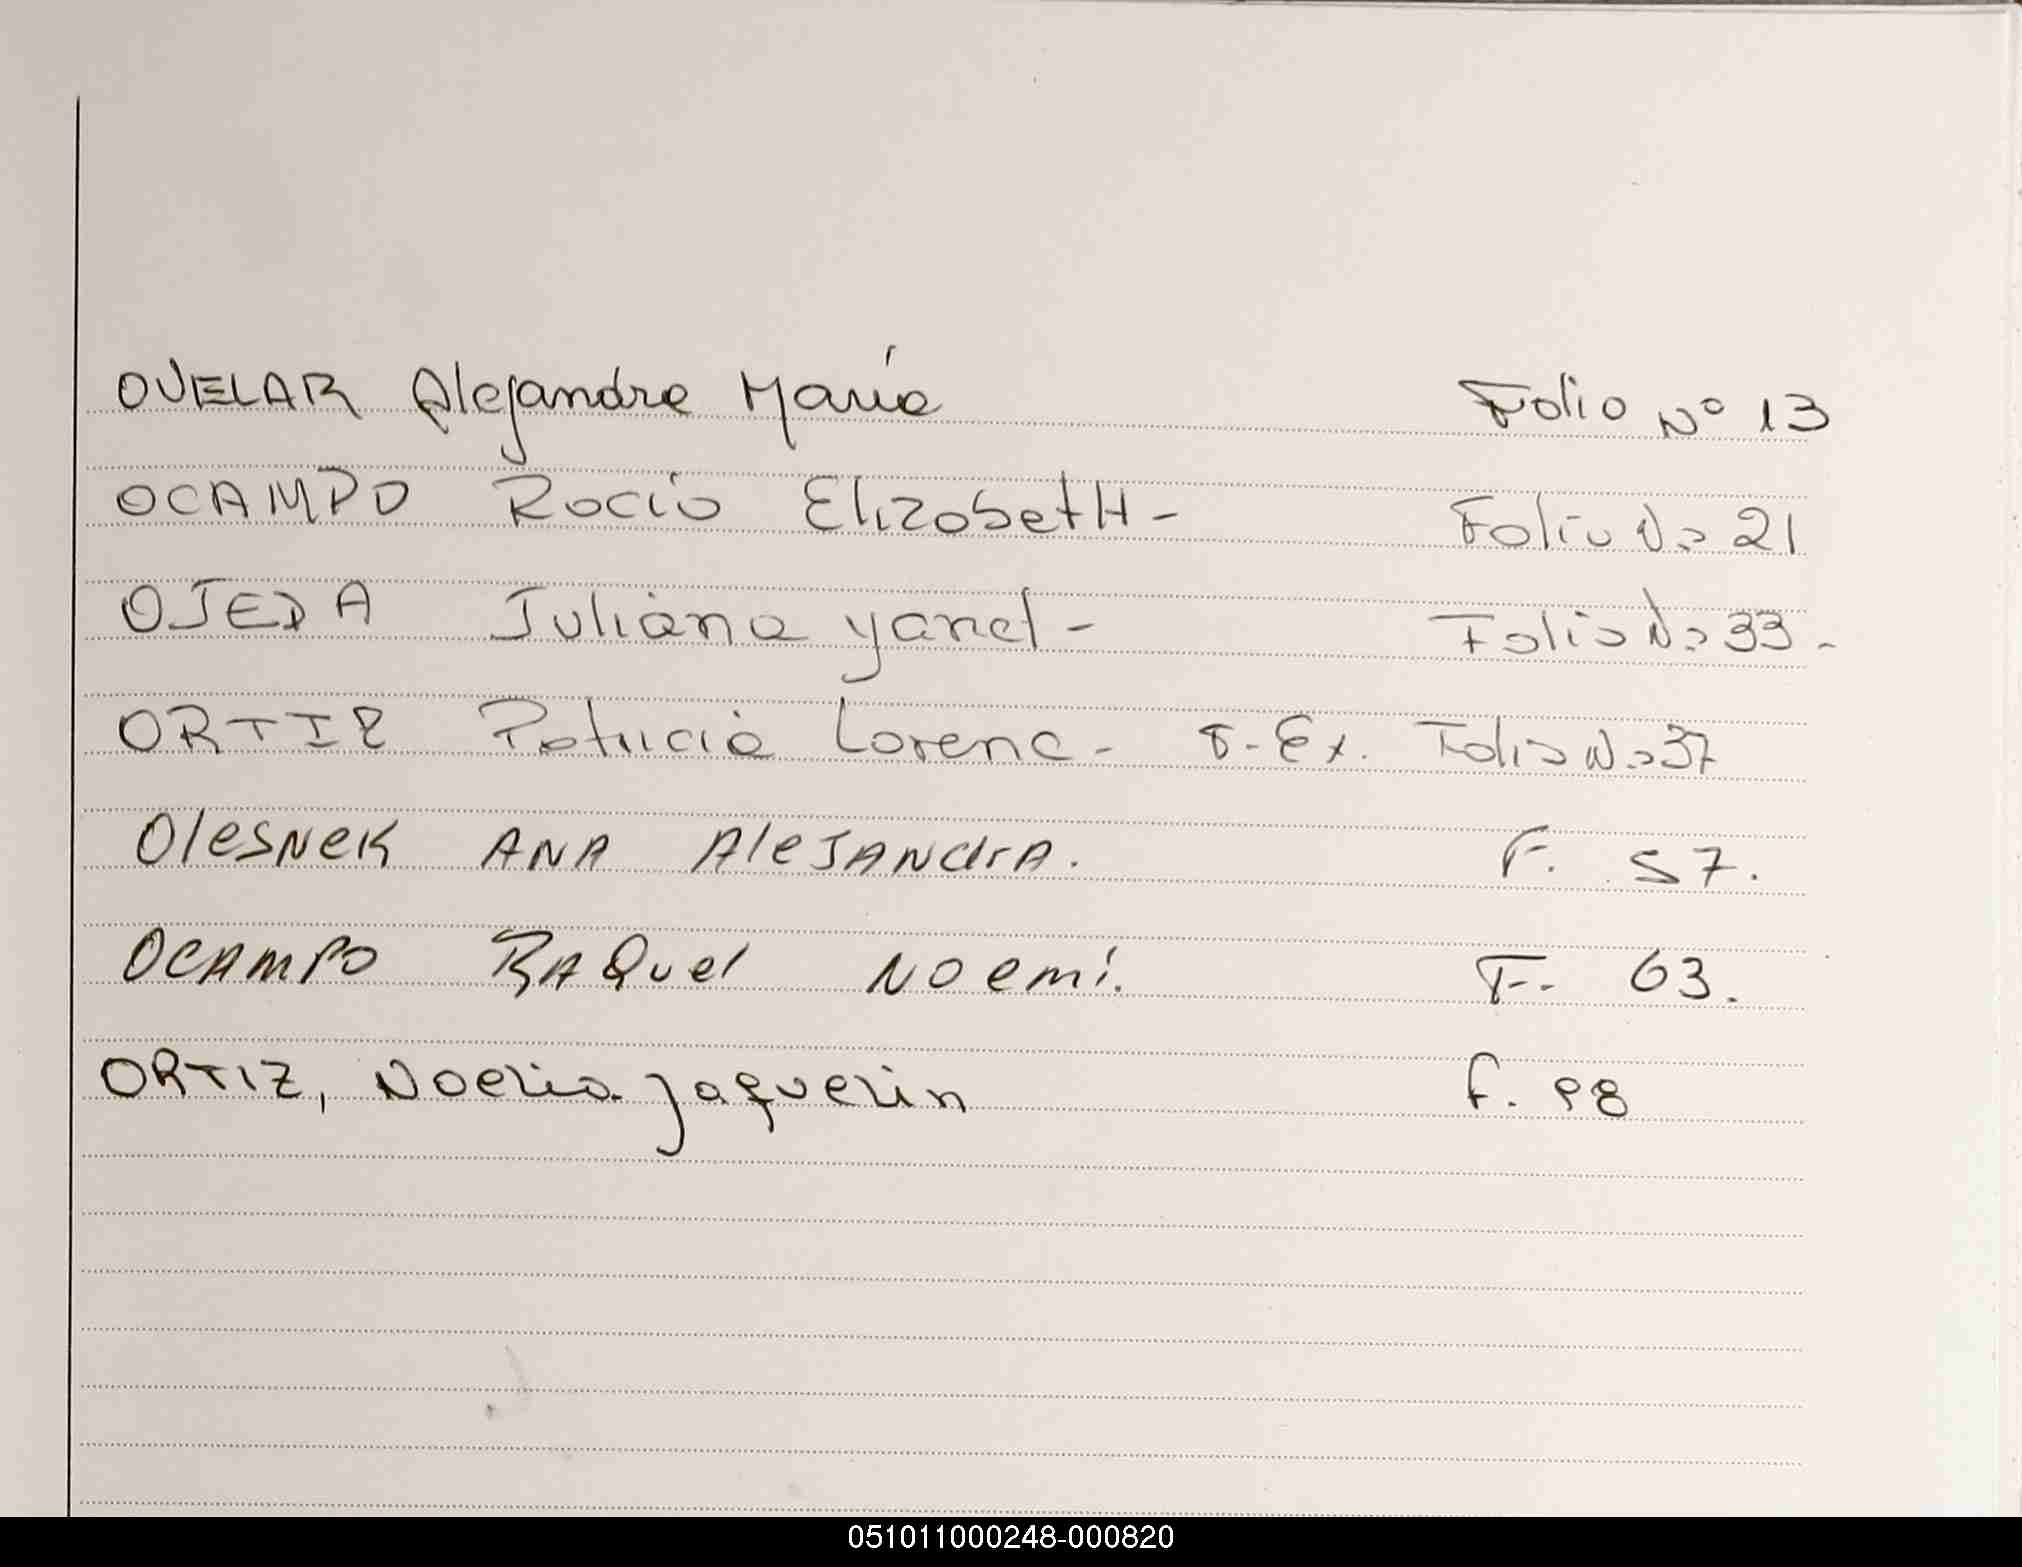 OVELAR Alejandra María Folio Nº 13
OCAMPO Rocio ElizabetH - Folio Nº 21
OJEDA Juliana yanet - Folio Nº 33 -
ORTIZ Patricia Lorena - Ex. Folio Nº 37
Olesnek ANA AleJANdrA. F. 57.
OCAMPO RAQuel NOemi. F. 63.
ORTIZ, Noelia Jaquelin F. 98
051011000248-000820